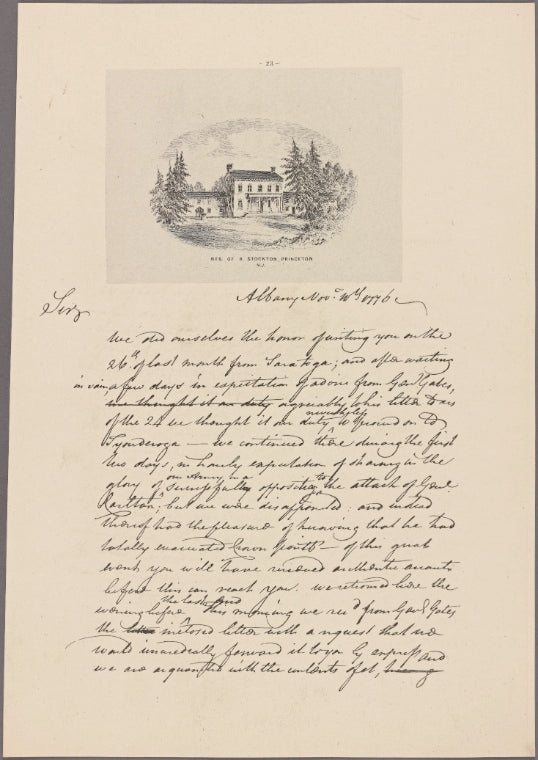 - 23 -
RES. OF R. STOCKTON, PRINCETON
N.J.
Albany Novr. 1776
Sir
We did ourselves the honor of writing you on the
26th of last month from Saratoga; and after waiting
in vain a few days in expectation of advice from Genl Gates,
we thought it our duty agreeably to his letter to us
of the 24 we thought it our duty to proceed on to
Tyonderoga — we continued there during the first
two days, in hourly expectation of sharing in the
glory of our Army in a successfully opposition to the attack of Genl
Carlton; but we were disappointed: and indeed
thereof had the pleasure of knowing that he had
totally evacuated Crown Point — of this great
event you will have received authentic accounts
before this can reach you. we returned here the
evening before the last and this morning we recd from Genl Gates
the letter inclosed letter with a request that we
would immediately forward it to you by express and
we are acquainted with the contents of it,